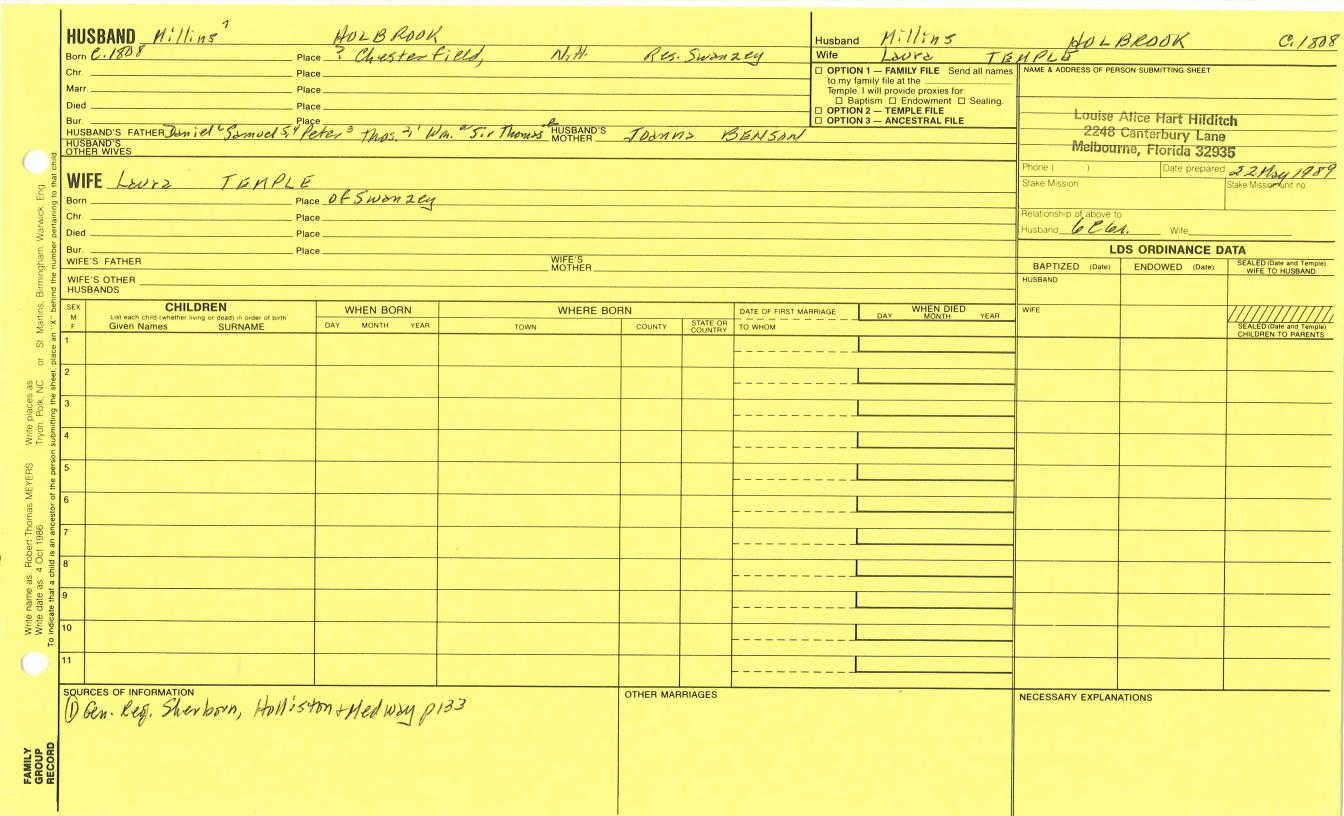 HUSBAND Millins 7 HOLBROOK
Born C.1808 Place ? Chesterfield, N.H. Res. Swanzey
Chr. Place
Marr. Place
Died Place
Bur. Place
HUSBAND'S FATHER Daniel 6 Samuel 5,4 Peter 3 Thos. 2,1 Wm. a Sir Thomas HUSBAND'S MOTHER Joanna BENSON
HUSBAND'S OTHER WIVES
WIFE Laura TEMPLE
Born Place of Swanzey
Chr. Place
Died Place
Bur. Place
WIFE'S FATHER WIFE'S MOTHER
WIFE'S OTHER HUSBANDS
Husband Millins HOLBROOK C.1808
Wife Laura TEMPLE
☐ OPTION 1 — FAMILY FILE Send all names
to my family file at the
Temple. I will provide proxies for
☐ Baptism ☐ Endowment ☐ Sealing.
☐ OPTION 2 — TEMPLE FILE
☐ OPTION 3 — ANCESTRAL FILE
NAME & ADDRESS OF PERSON SUBMITTING SHEET
Louise Alice Hart Hilditch
2248 Canterbury Lane
Melbourne, Florida 32935
Phone ( ) Date prepared 22 May 1989
Stake Mission Stake Mission unit no.
Relationship of above to
Husband 6C6r. Wife
LDS ORDINANCE DATA
BAPTIZED (Date) ENDOWED (Date) SEALED (Date and Temple) WIFE TO HUSBAND
HUSBAND
WIFE
SEALED (Date and Temple) CHILDREN TO PARENTS
SEX M F
CHILDREN
List each child (whether living or dead) in order of birth
Given Names SURNAME
WHEN BORN
DAY MONTH YEAR
WHERE BORN
TOWN COUNTY STATE OR COUNTRY
DATE OF FIRST MARRIAGE
TO WHOM
WHEN DIED
DAY MONTH YEAR
1
2
3
4
5
6
7
8
9
10
11
SOURCES OF INFORMATION
① Gen. Reg. Sherborn, Holliston + Medway p133
OTHER MARRIAGES
NECESSARY EXPLANATIONS
Write name as: Robert Thomas MEYERS Write places as: Tryon, Polk, NC or St. Martins, Birmingham, Warwick, Eng.
Write date as: 4 Oct 1986
To indicate that a child is an ancestor of the person submitting the sheet, place an "X" behind the number pertaining to that child
FAMILY GROUP RECORD